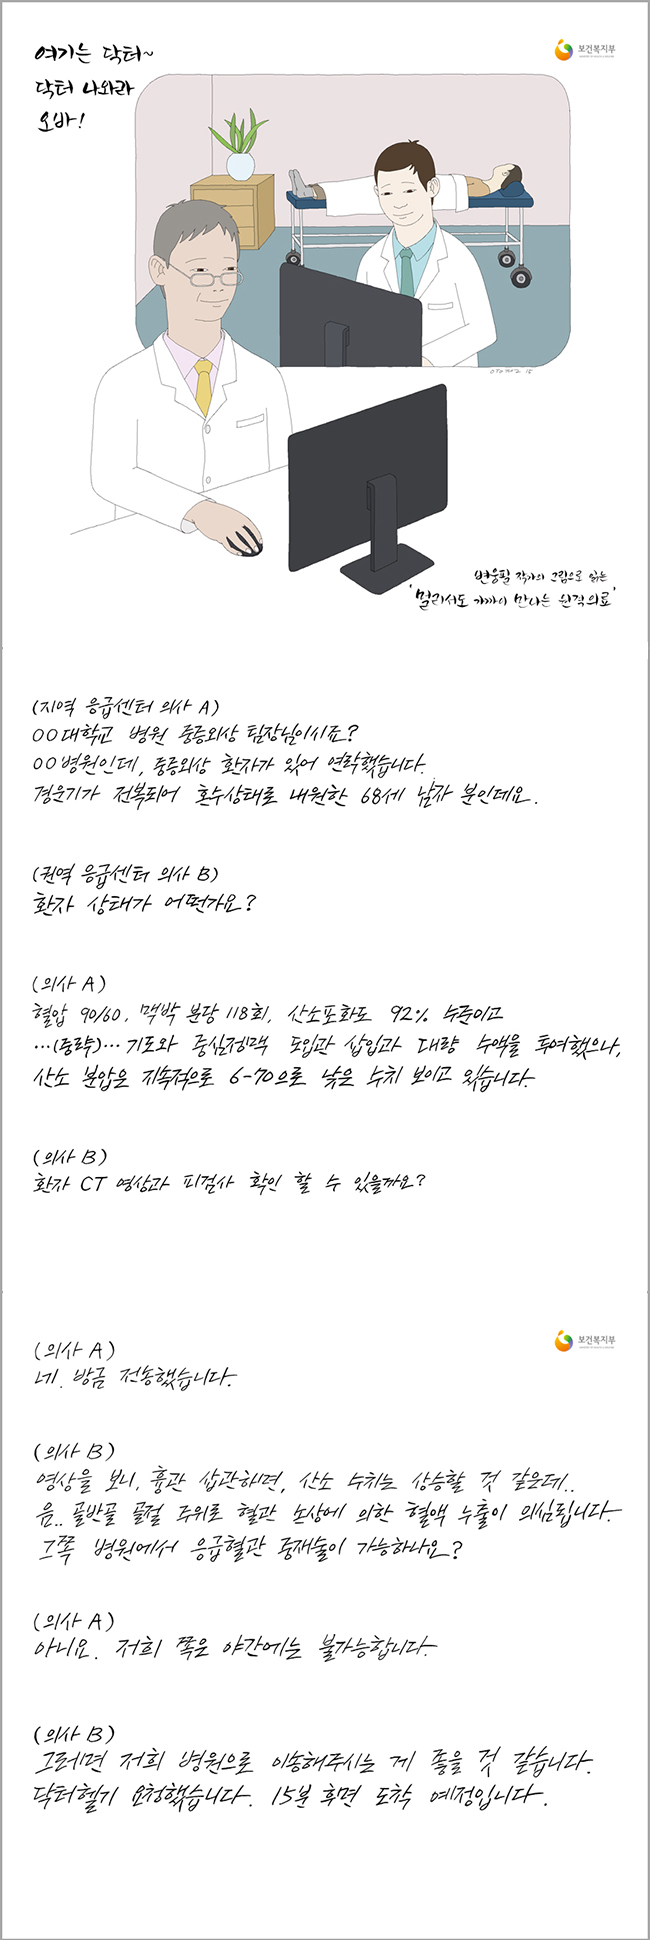 여기는 닥터~
닥터 나와라
오바!
보건복지부
변웅필 작가의 그림으로 읽는
'멀리서도 가까이 만나는 원격의료'
(지역 응급센터 의사 A)
○○대학교 병원 중증외상 팀장님이시죠?
○○병원인데, 중증외상 환자가 있어 연락했습니다.
경운기가 전복되어 혼수상태로 내원한 68세 남자 분인데요.
(권역 응급센터 의사 B)
환자 상태가 어떤가요?
(의사 A)
혈압 90/60, 맥박 분당 118회, 산소포화도 92% 수준이고
…(중략)… 기도와 중심정맥 도입관 삽입과 대량 수액을 투여했으나,
산소 분압은 지속적으로 6-70으로 낮은 수치 보이고 있습니다.
(의사 B)
환자 CT 영상과 피검사 확인 할 수 있을까요?
(의사 A)
보건복지부
네. 방금 전송했습니다.
(의사 B)
영상을 보니, 흉관 삽관하면, 산소 수치는 상승할 것 같은데..
음.. 골반골 골절 주위로 혈관 손상에 의한 혈액 누출이 의심됩니다.
그쪽 병원에서 응급혈관 중재술이 가능하나요?
(의사 A)
아니요. 저희 쪽은 야간에는 불가능합니다.
(의사 B)
그러면 저희 병원으로 이송해주시는 게 좋을 것 같습니다.
닥터헬기 요청했습니다. 15분 후면 도착 예정입니다.